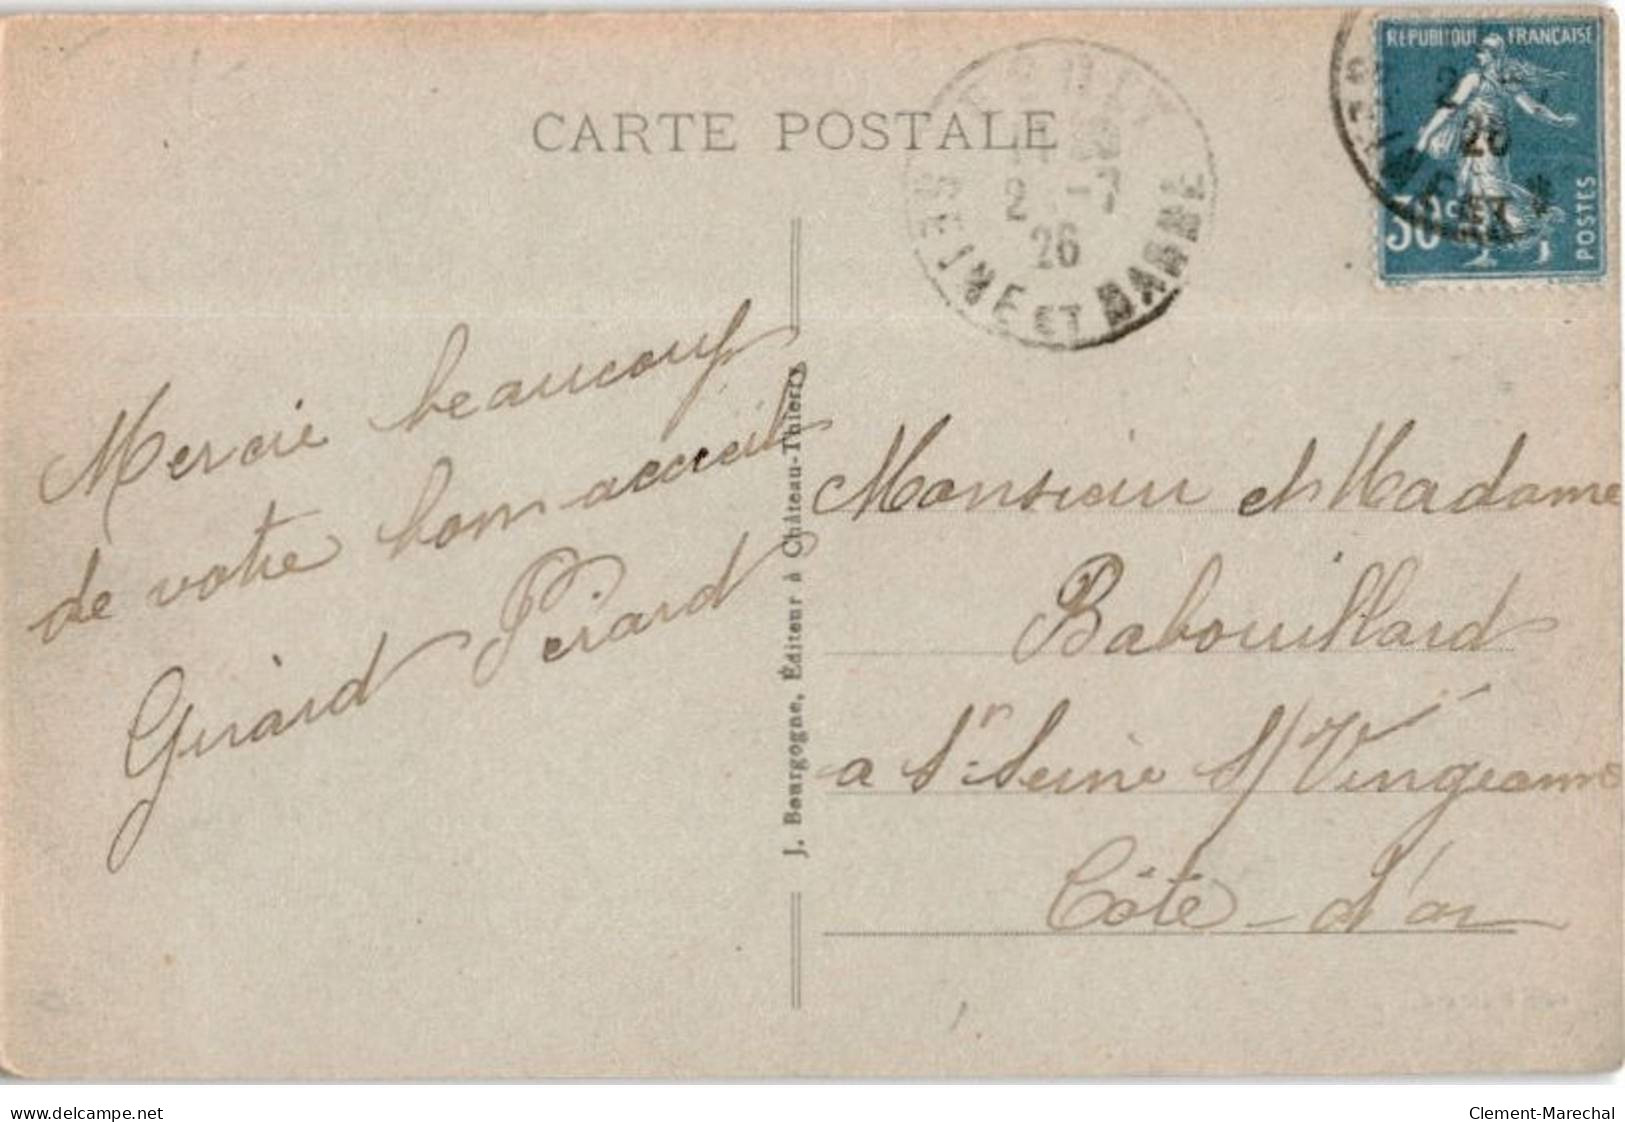 CARTE POSTALE
26
SEINE ET MARNE
REPUBLIQUE FRANÇAISE
26
30c
POSTES
Mercie beaucoup
de votre bon acceuil
Girard Pérard
J. Bourgogne, Éditeur à Château-Thierry
Monsieur et Madame
Babouillard
a St Seine S/ Vingeanne
Côte-d'or
delcampe.net
Clement-Marechal